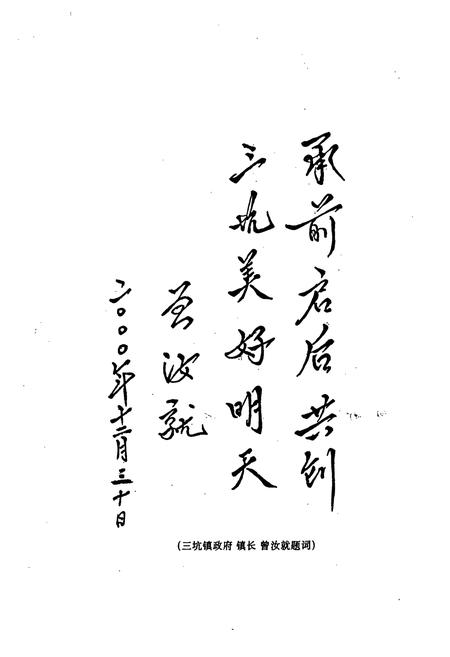 承前启后共创
三坑美好明天
曾汝就
二〇〇〇年十二月三十日
(三坑镇政府 镇长 曾汝就题词)